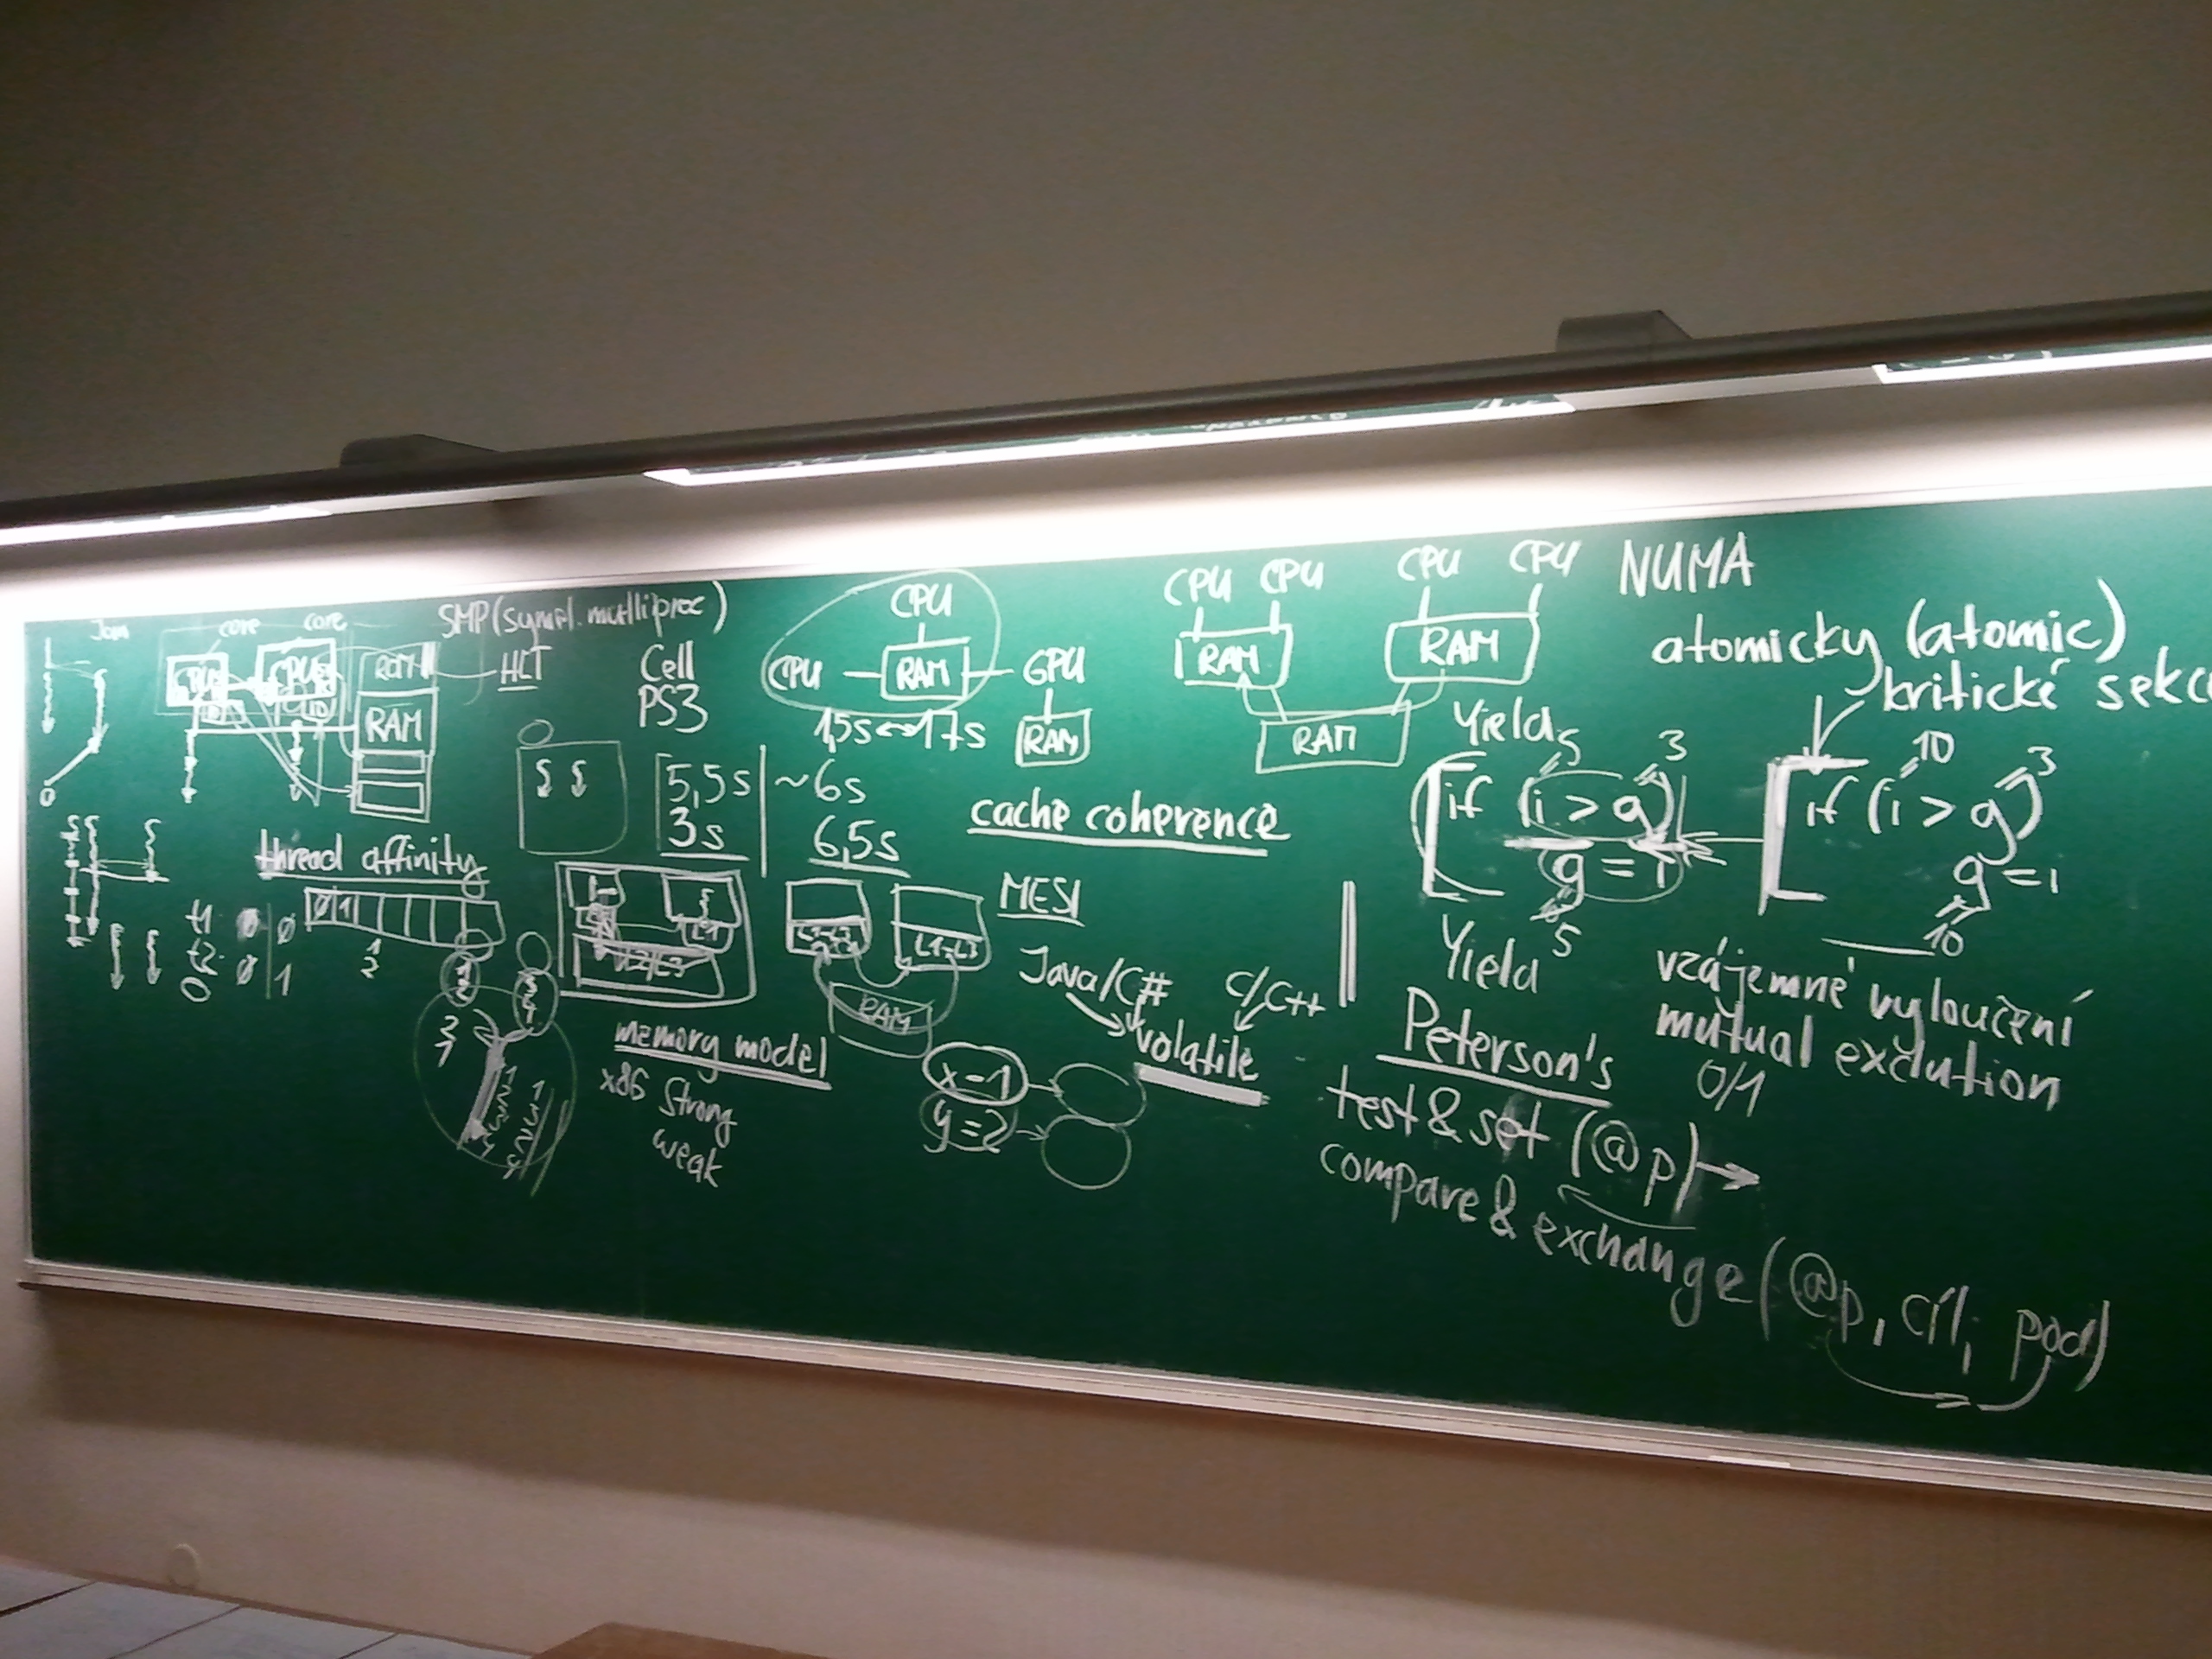 Join
core core
SMP (symet. multiproc)
CPU CPU
RAM
HLT
RAM
thread affinity
t1 0 0
t2 0 1
0
0 1
1
2
2
1
Cell
PS3
5,5s ~6s
3s 6,5s
L1
L2/L3
memory model
x86 strong
weak
CPU
CPU RAM GPU
1,5s ↔ 17s
RAM
cache coherence
L1-L3 L1-L3
RAM
MESI
Java/C# C/C++
volatile
x=1
y=2
CPU CPU CPU CPU NUMA
RAM RAM
RAM
atomicky (atomic)
kritické sekc
Yield
5 3
if (i > g)
g = i
5
Yield
10 3
if (i > g)
g = i
10
vzájemné vyloučení
mutual exclution
0/1
Peterson's
test & set (@p) →
compare & exchange (@p, cíl, pod)